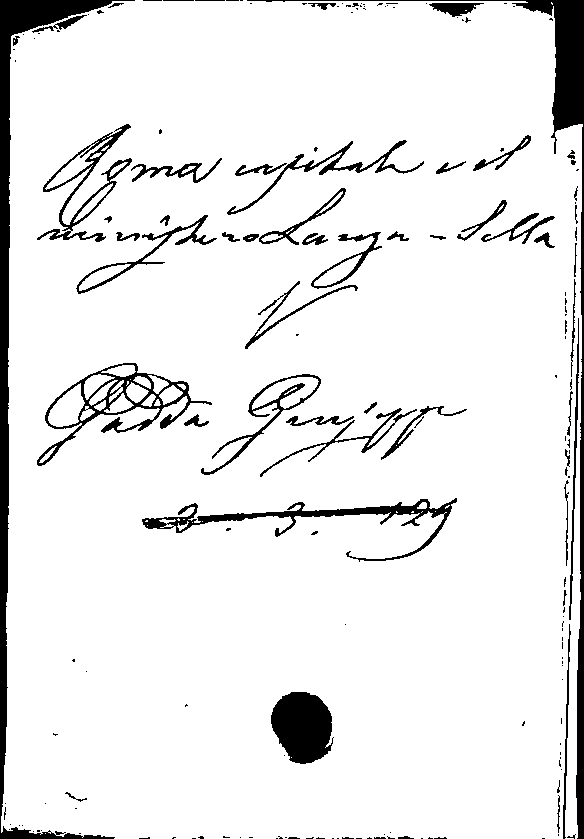 Roma capitale e il
ministero Lanza - Sella
V.
Gadda Giuseppe
3. 3. 129